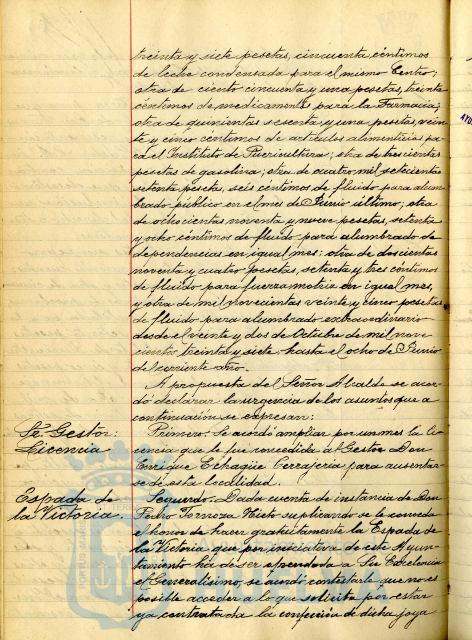 treinta y siete pesetas, cincuenta céntimos
de leche condensada para el mismo Centro;
otra de ciento cincuenta y una pesetas, treinta
céntimos de medicamentos para la Farmacia;
otra de quinientas sesenta y una pesetas, vein
te y cinco céntimos de artículos alimenticios pa
ra el Instituto de Puericultura; otra de trescientas
pesetas de gasolina; otra de cuatro mil setecientas
setenta pesetas, seis céntimos de fluido para alum
brado público en el mes de Junio último; otra
de ochocientas noventa y nueve pesetas, setenta
y ocho céntimos de fluido para alumbrado de
dependencias en igual mes; otra de doscientas
noventa y cuatro pesetas, setenta y tres céntimos
de fluido para fuerza motriz en igual mes,
y otra de mil novecientas veinte y cinco pesetas
de fluido para alumbrado extraordinario
desde el veinte y dos de Octubre de mil nove
cientos treinta y siete hasta el ocho de Junio
del corriente año.
A propuesta del Señor Alcalde se acor
dó declarar la urgencia de los asuntos que a
continuación se expresan:
Sr. Gestor:
Licencia
Primero. Se acordó ampliar por un mes la li
cencia que le fue concedida al Gestor Don
Enrique Echagüe Cerrajería para ausentar
se de esta localidad.
Espada de
la Victoria.
Segundo. Dada cuenta de instancia de Don
Pedro Tornoza Nieto suplicando se le conceda
el honor de hacer gratuitamente la Espada de
la Victoria que por iniciativa de este Ayun
tamiento ha de ser ofrendada a Su Excelencia
el Generalísimo, se acordó contestarle que no es
posible acceder a lo que solicita por estar
ya contratada la confección de dicha joya